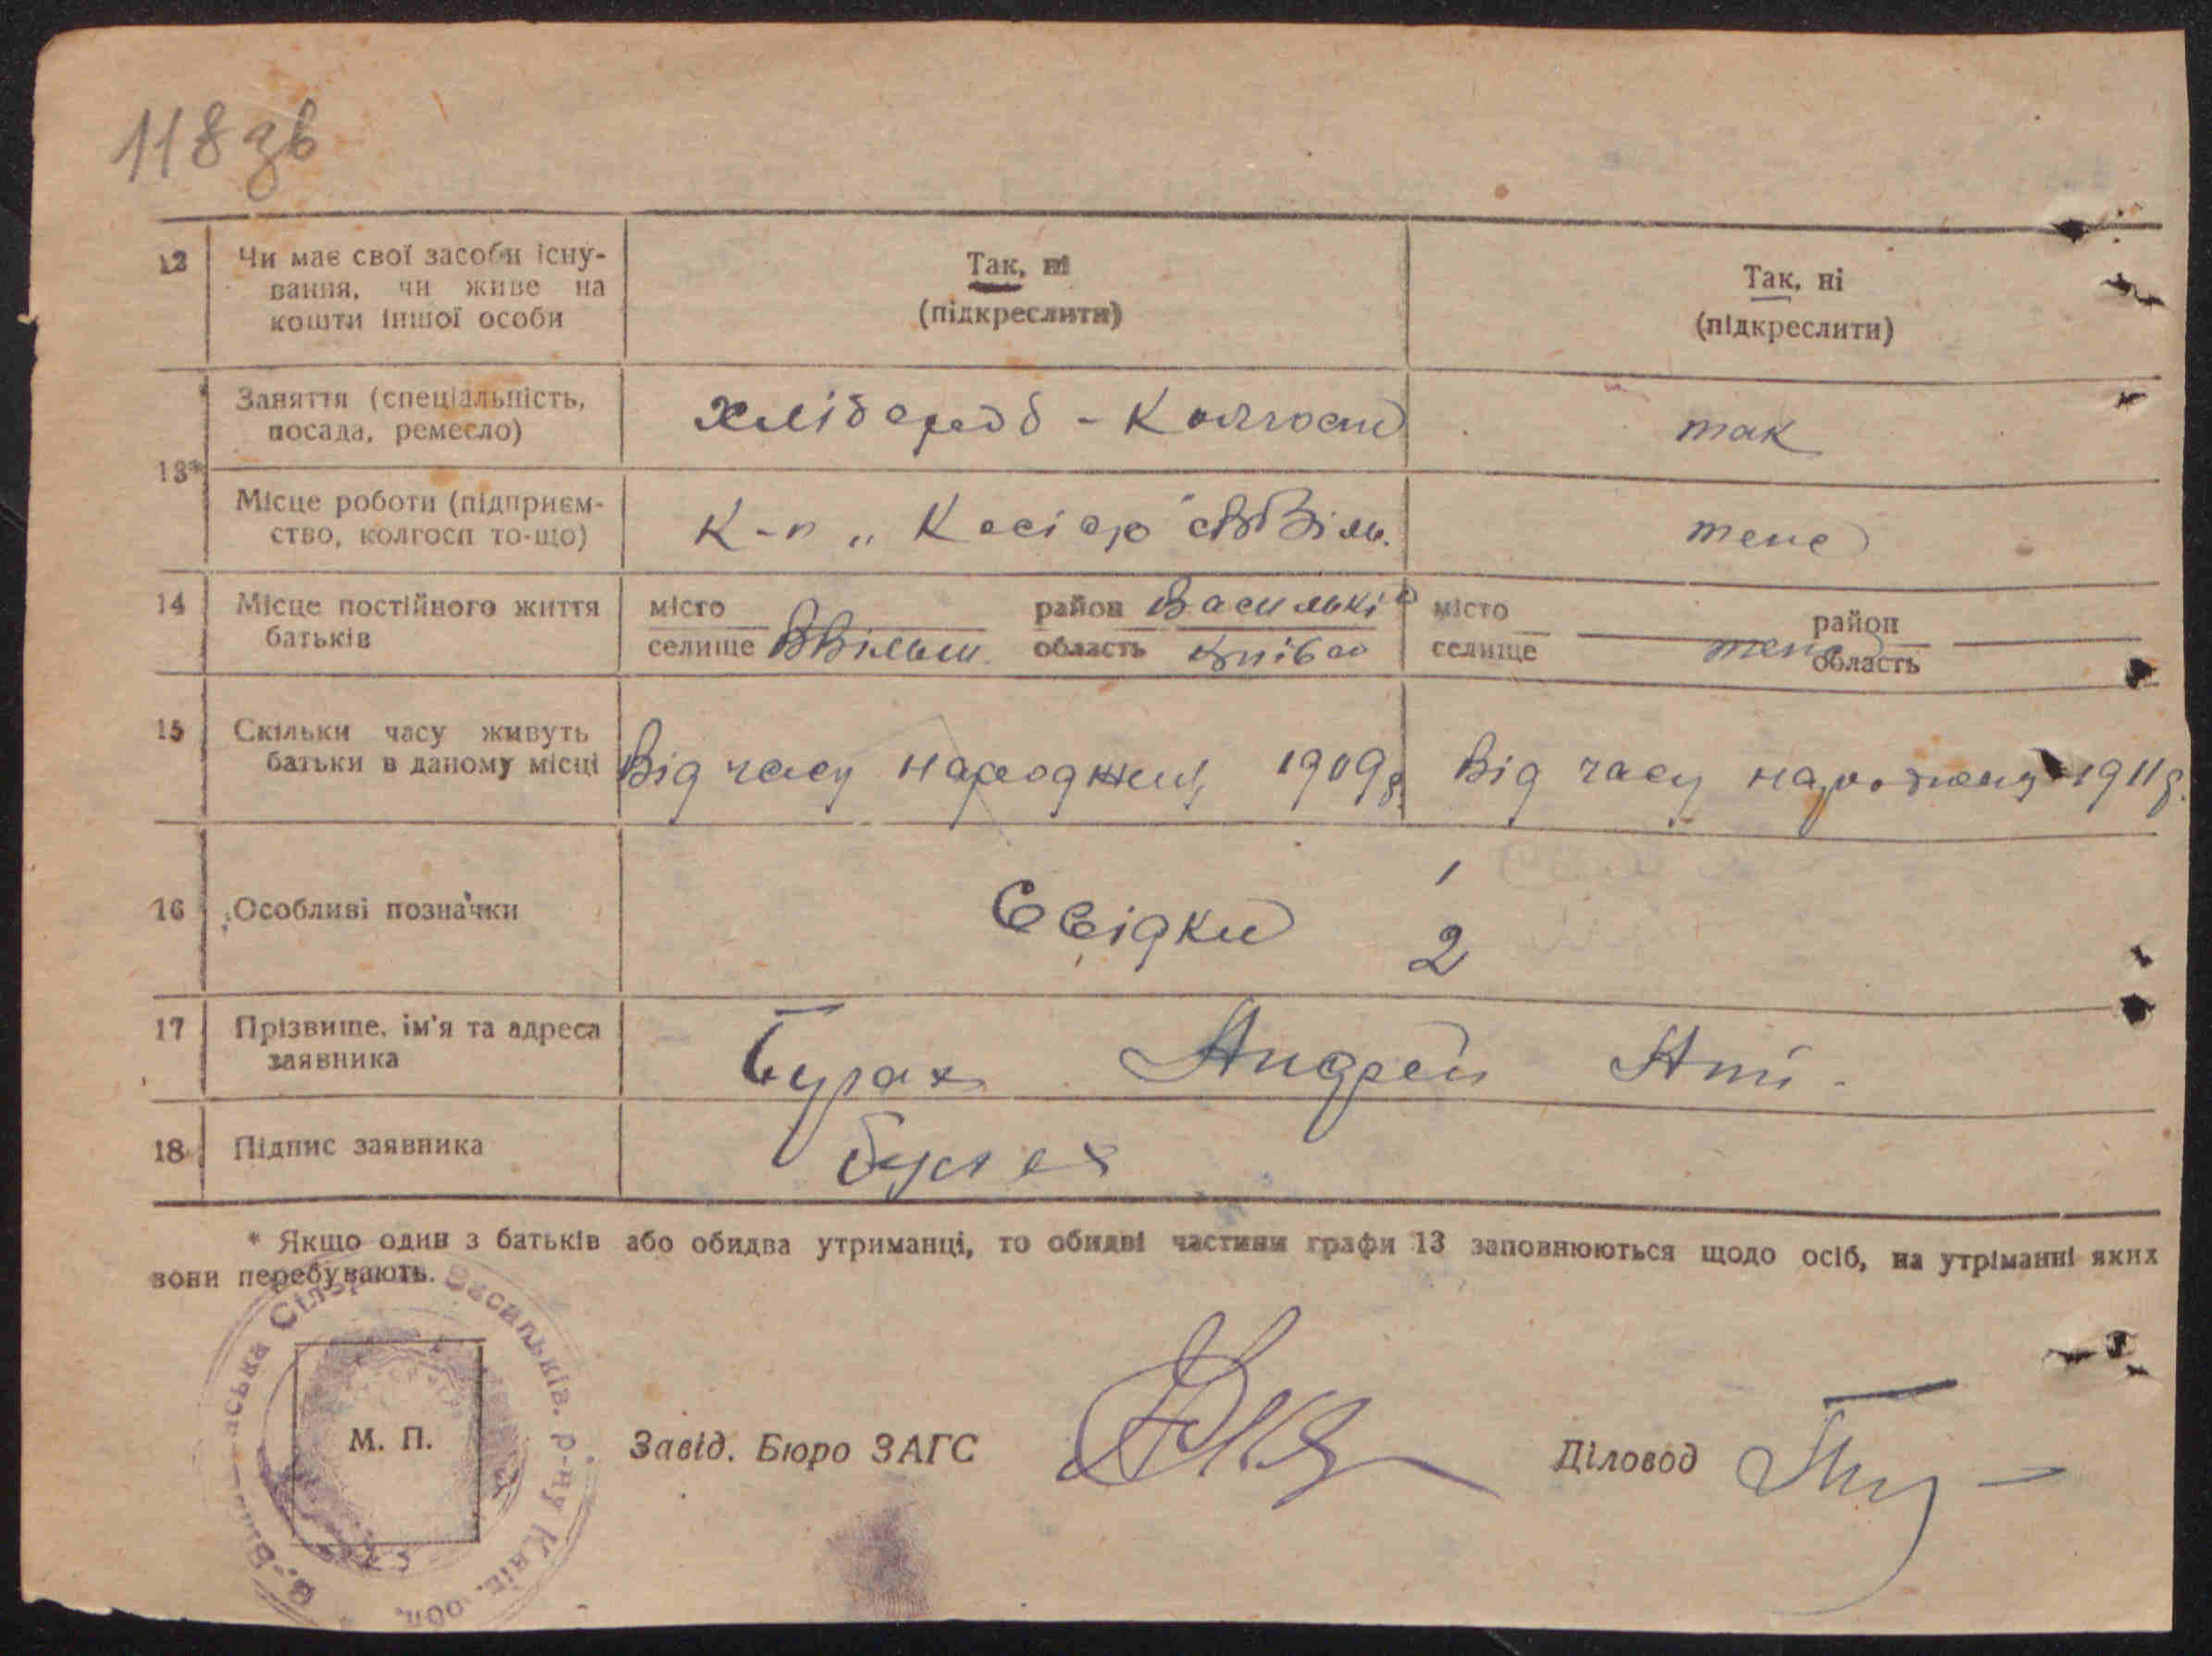 118 зв
12 Чи має свої засоби існу-
вання, чи живе на
кошти іншої особи
Так, ні
(підкреслити)
Так, ні
(підкреслити)
13*
Заняття (спеціальність,
посада, ремесло)
Хлібороб - Колгосп
так
Місце роботи (підприєм-
ство, колгосп то-що)
К-п „Косіор"
теж
14 Місце постійного життя
батьків
місто
селище
район Васильків
область Київ
місто
селище
теж
район
область
15 Скільки часу живуть
батьки в даному місці
Від часу народжен 1909 р.
Від часу народжен 1911 р.
16 Особливі позначки
Свідки 1
2
17 Прізвище, ім'я та адреса
заявника
Бурах Андрей Ант.
18 Підпис заявника
Бурах
* Якщо один з батьків або обидва утриманці, то обидві частини графи 13 заповнюються щодо осіб, на утріманні яких
вони перебувають.
Васильків. р-ну Київ. обл.
М. П.
Завід. Бюро ЗАГС
Діловод